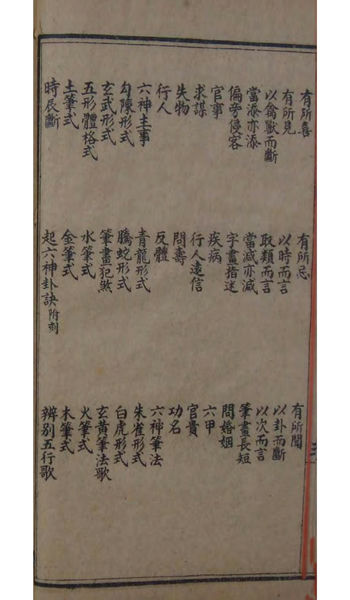 有所喜 有所忌 有所聞
有所見 以時而言 以卦而斷
以禽獸而斷 取類而言 以次而言
當添亦添 當減亦減 筆畫長短
偏旁侵客 字畫指迷 問婚姻
官事 疾病 六甲
求謀 行人遠信 官貴
失物 問壽 功名
行人 反體 六神筆法
六神主事 青龍形式 朱雀形式
勾陳形式 騰蛇形式 白虎形式
玄武形式 筆畫犯煞 玄黃筆法歌
五形體格式 水筆式 火筆式
土筆式 金筆式 木筆式
時辰斷 起六神卦訣附 辨別五行歌